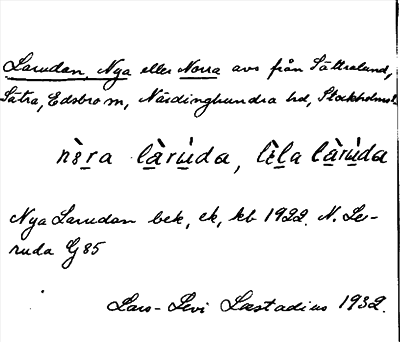 Larudan, Nya eller Norra avs från Sättralund,
Sätra, Edsbro sn, Närdinghundra hd, Stockholms l.
nè̱ra là̱rù̱da, lì̱la là̱rù̱da
Nya Larudan bek, ek, kb 1922. N. La-
ruda G 85
Lars-Levi Læstadius 1932.